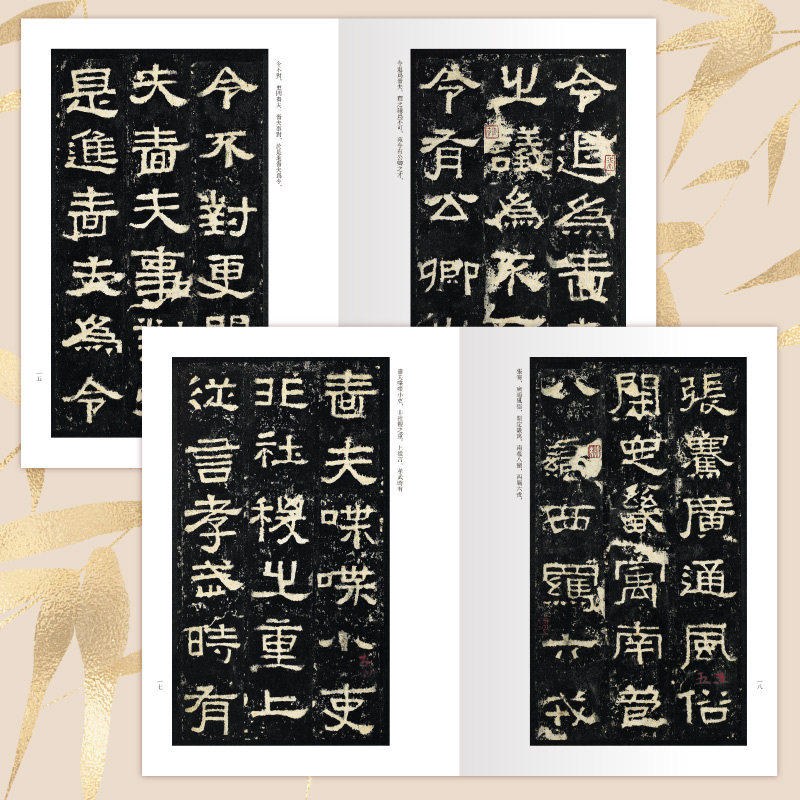 令不對更
夫嗇夫事
是進嗇夫為令
令不對，更問嗇夫，嗇夫事對，於是進嗇夫為令，
一五
令退為嗇
之議為不
令有公卿
令退為嗇夫，釋之議為不可，苑令有公卿之才，
嗇夫喋喋小吏
非社稷之重上
從言孝武時有
嗇夫喋喋小吏，非社稷之重，上從言，孝武時有
一七
張騫廣通風俗
開定畿寓南苞
八蠻西羈六戎
張騫，廣通風俗，開定畿寓，南苞八蠻，西羈六戎，
一八